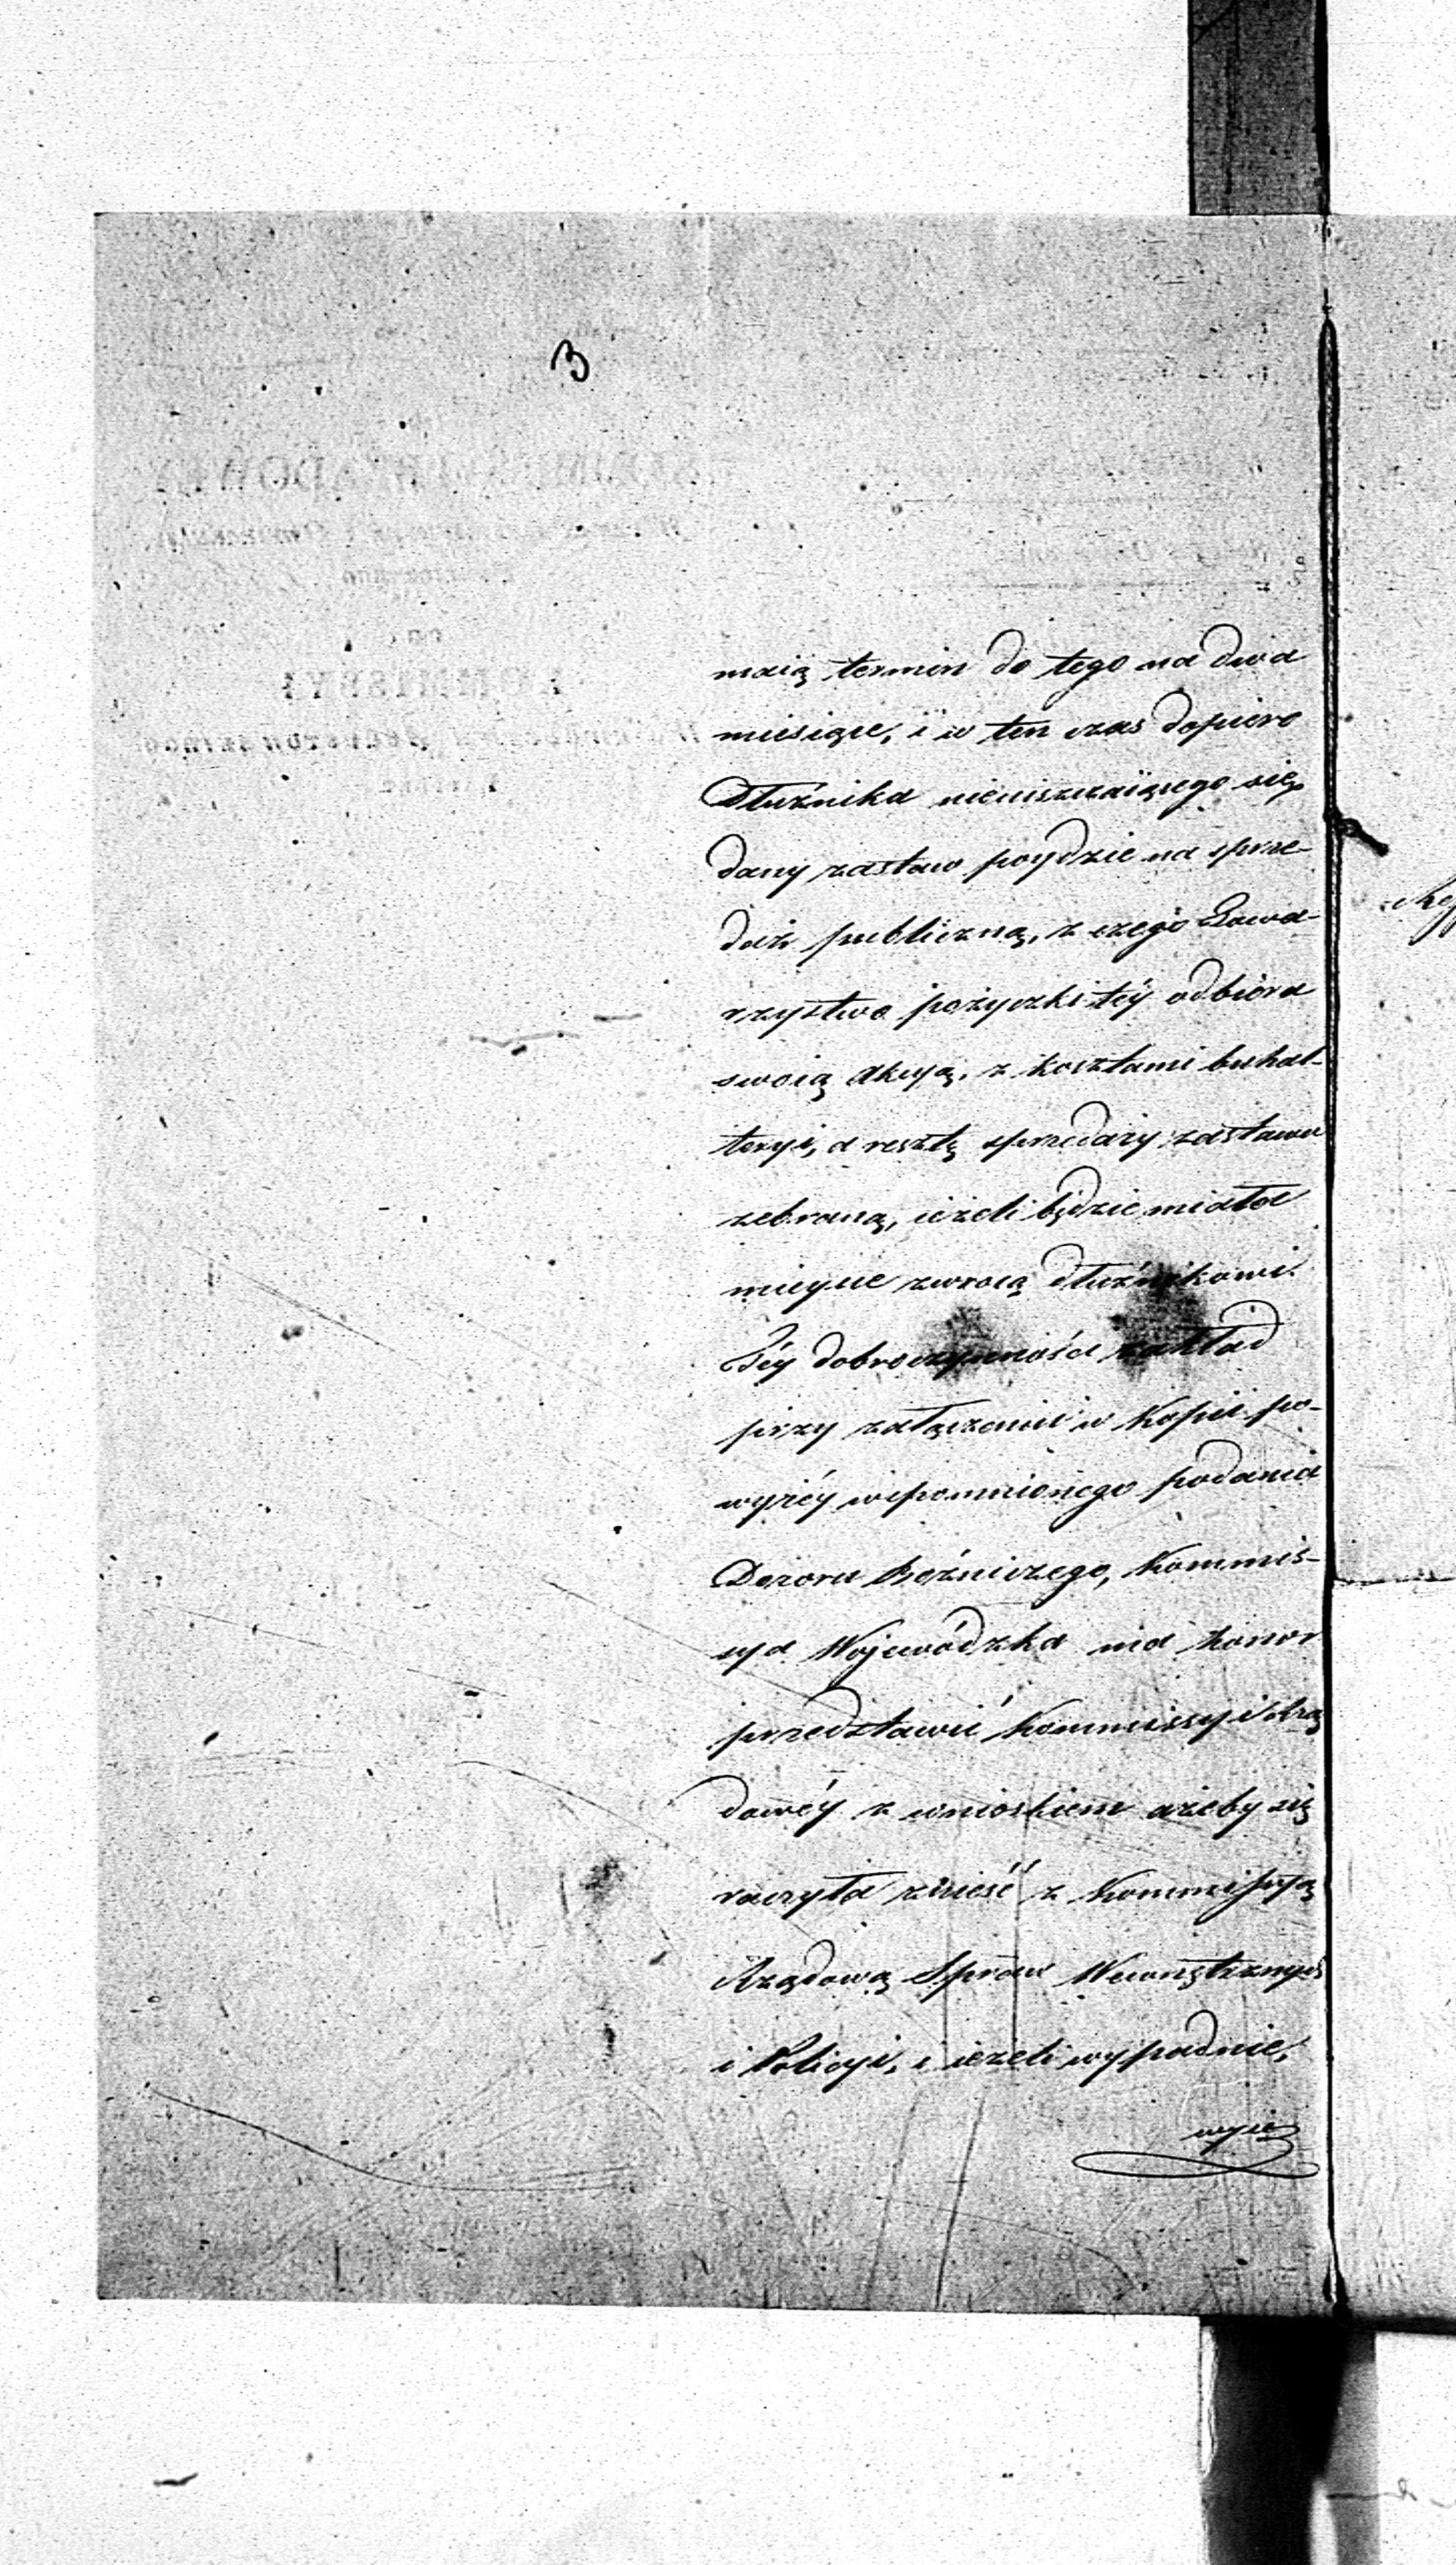 3
maią termin do tego na dwa
miesiące, i w ten czas dopiero
Dłużnika nieuiszczaiącego się
dany zastaw poydzie na sprze-
daż publiczną, z czego Towa-
rzystwo pożyczki téy odbiera
swoią akcyą, z kosztami buhal-
teryi, a resztę sprzedaży zastawu
zebraną, ieżeli będzie miała
mieysce zwrocą dłużnikowi.
Téy dobroczynności zakład
przy załączeniu w Kopii po-
wyżéy wspomnionego podania
Dozoru Bożniczego, Kommis-
sya Wojewódzka ma honor
przedstawić Kommissyi Rzą
dowéy z wnioskiem ażeby się
raczyła znieść z Kommissyą
Rządową Spraw Wewnętrznych
i Policyi, i ieżeli wypadnie,